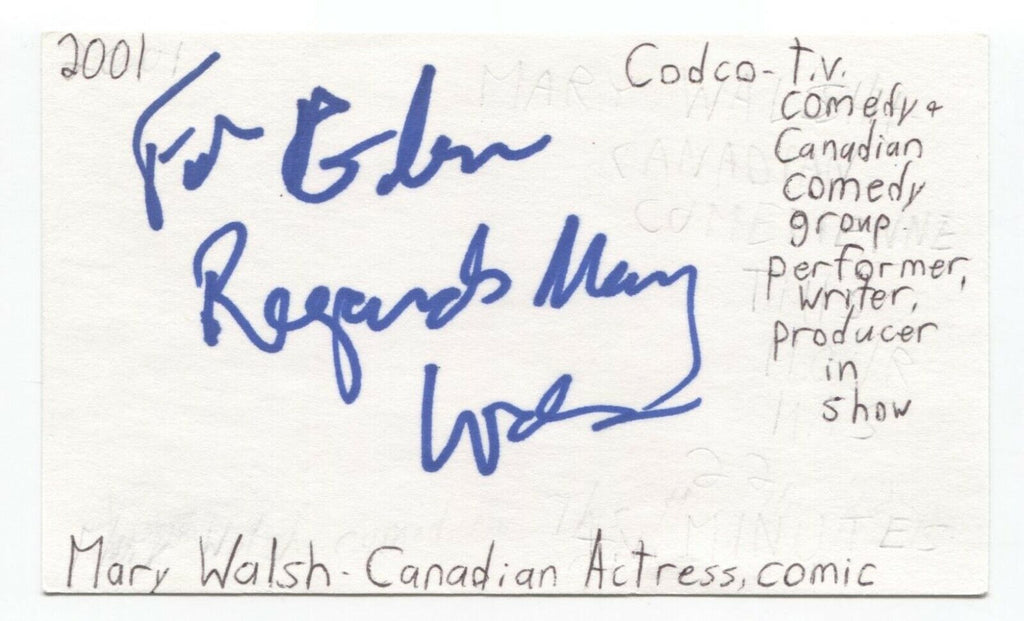 2001
For Glen
Regards Mary
Walsh
Codco- t.v.
comedy +
Canadian
comedy
group.
performer,
writer,
producer
in
show
Mary Walsh- Canadian Actress, comic